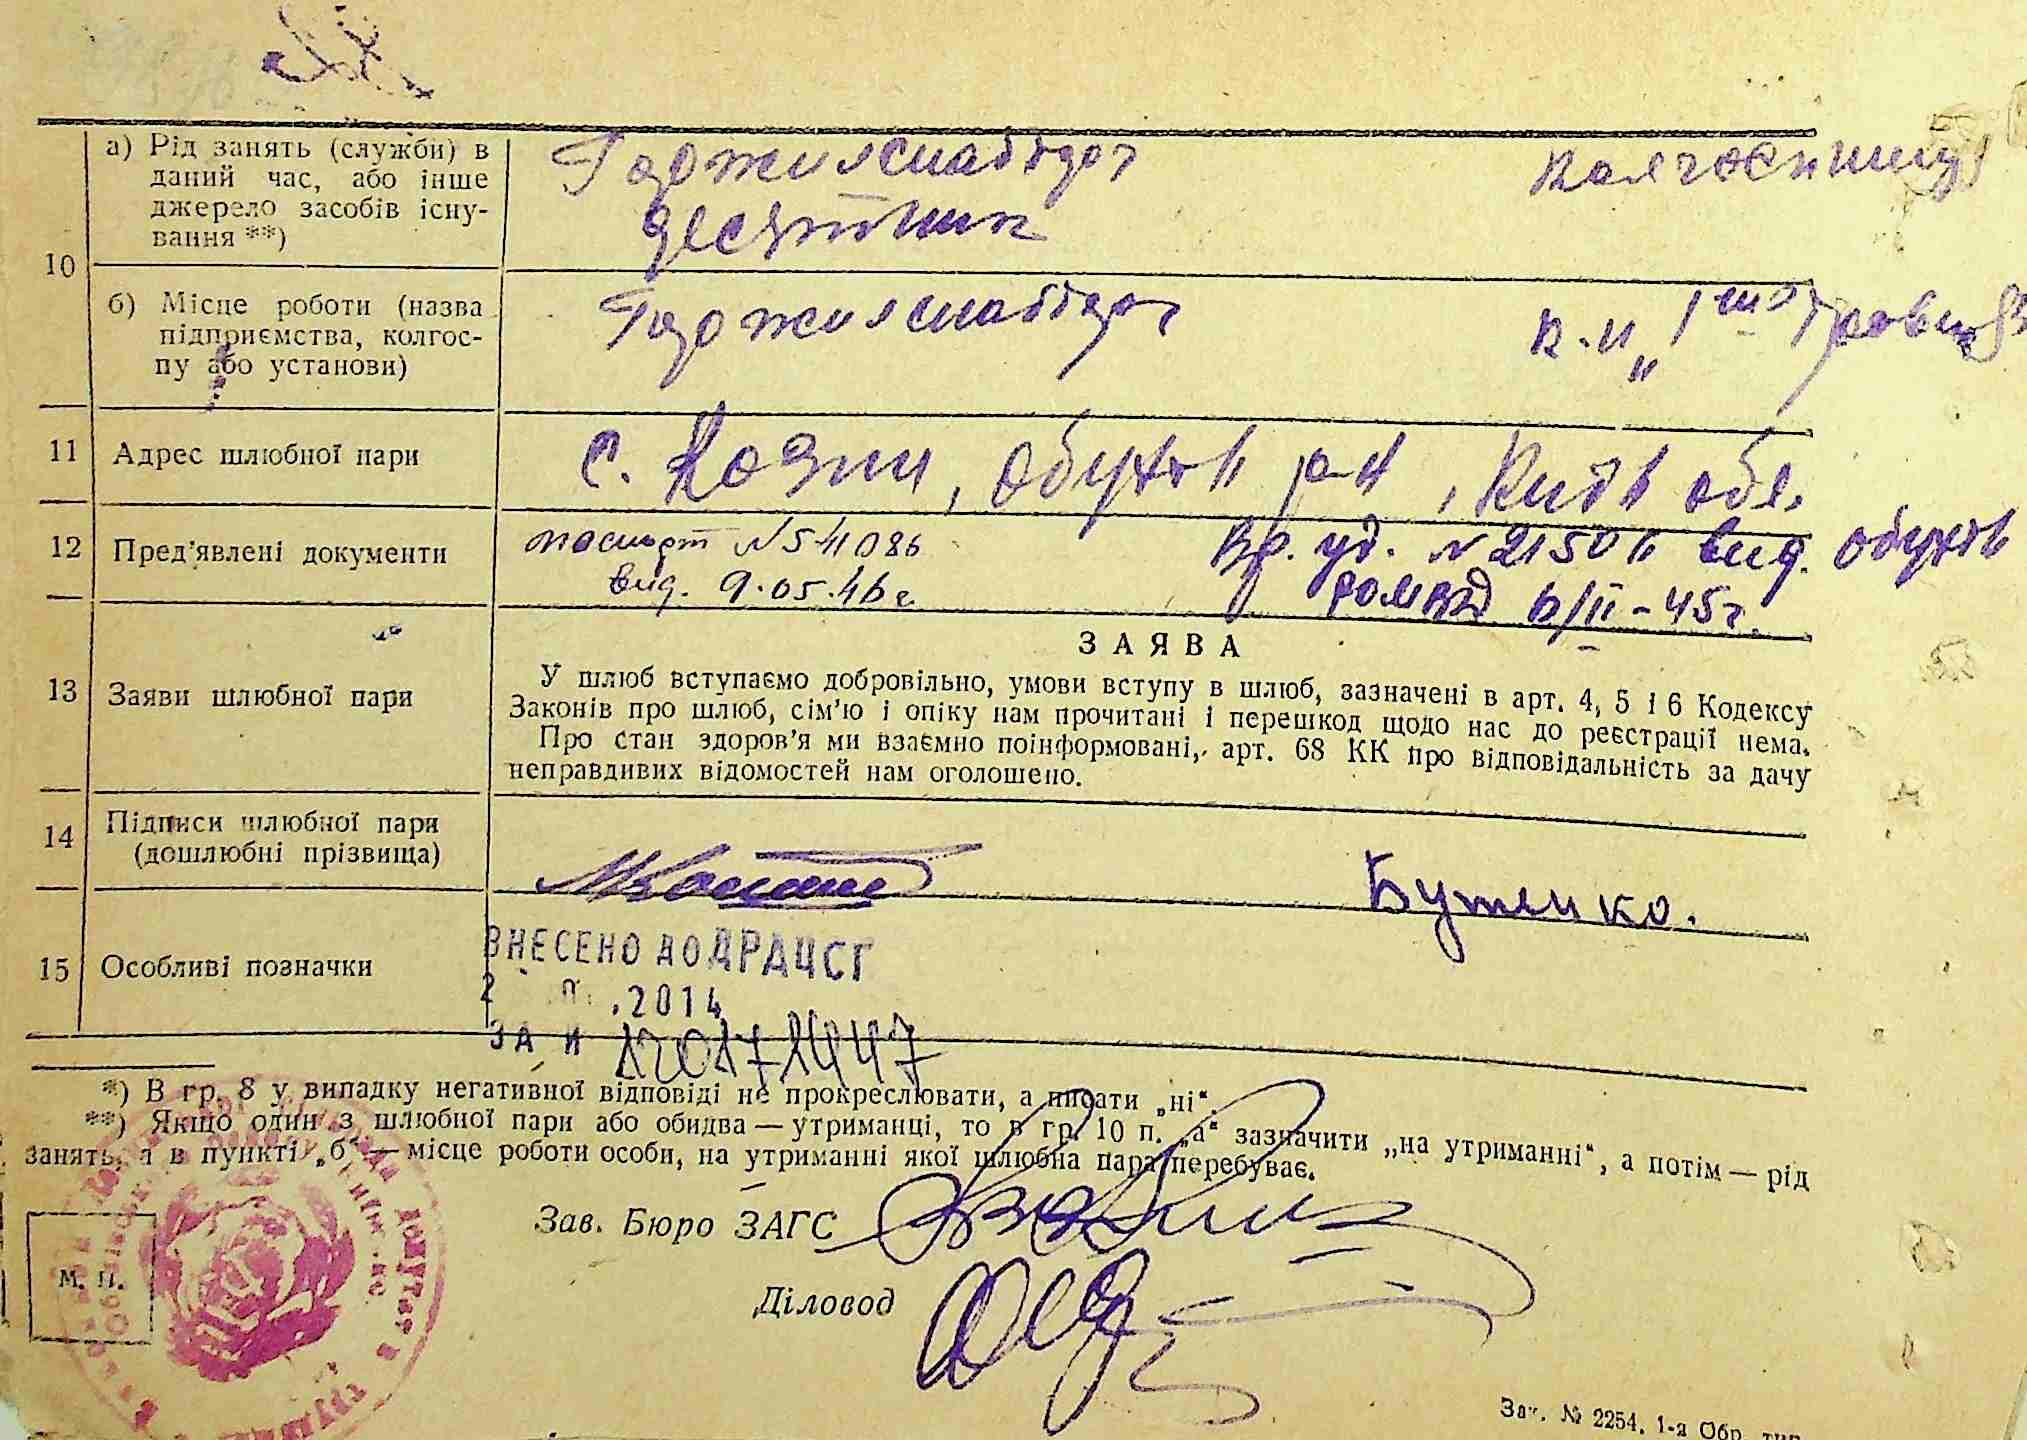 10
а) Рід занять (служби) в
даний час, або інше
джерело засобів існу-
вання **)
десятник
колгоспниця
б) Місце роботи (назва
підприємства, колгос-
пу або установи)
11 Адрес шлюбної пари
с. Козин, Обухів р-н, Київ обл.
12 Пред'явлені документи
паспорт N 541086
вид. 9.05.46 г.
Вр. уд. N 2150 вид. Обухів
6/II-45г.
ЗАЯВА
13 Заяви шлюбної пари
У шлюб вступаємо добровільно, умови вступу в шлюб, зазначені в арт. 4, 5 і 6 Кодексу
Законів про шлюб, сім'ю і опіку нам прочитані і перешкод щодо нас до реєстрації нема.
Про стан здоров'я ми взаємно поінформовані, арт. 68 КК про відповідальність за дачу
неправдивих відомостей нам оголошено.
14 Підписи шлюбної пари
(дошлюбні прізвища)
Бутенко.
15 Особливі позначки
ВНЕСЕНО ДО ДРАЦСГ
.2014
ЗА N 120171447
*) В гр. 8 у випадку негативної відповіді не прокреслювати, а писати „ні“.
**) Якщо один з шлюбної пари або обидва — утриманці, то в гр. 10 п. „а“ зазначити „на утриманні“, а потім — рід
занять, а в пункті „б“ — місце роботи особи, на утриманні якої шлюбна пара перебуває.
Зав. Бюро ЗАГС
М. П.
Діловод
Зак. № 2254. 1-а Обр. тип.